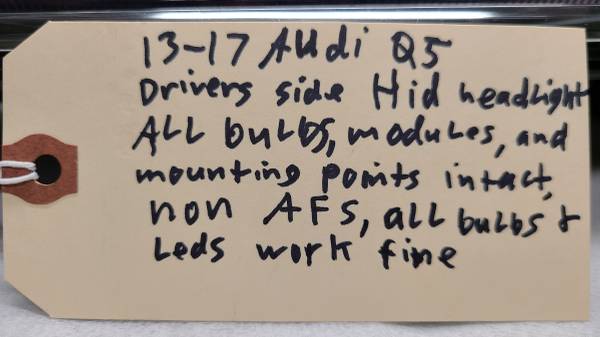 13-17 AUdi Q5
Drivers side Hid headLight
ALL buLbs, moduLes, and
mounting points intact,
non AFS, all buLbs &
Leds work fine